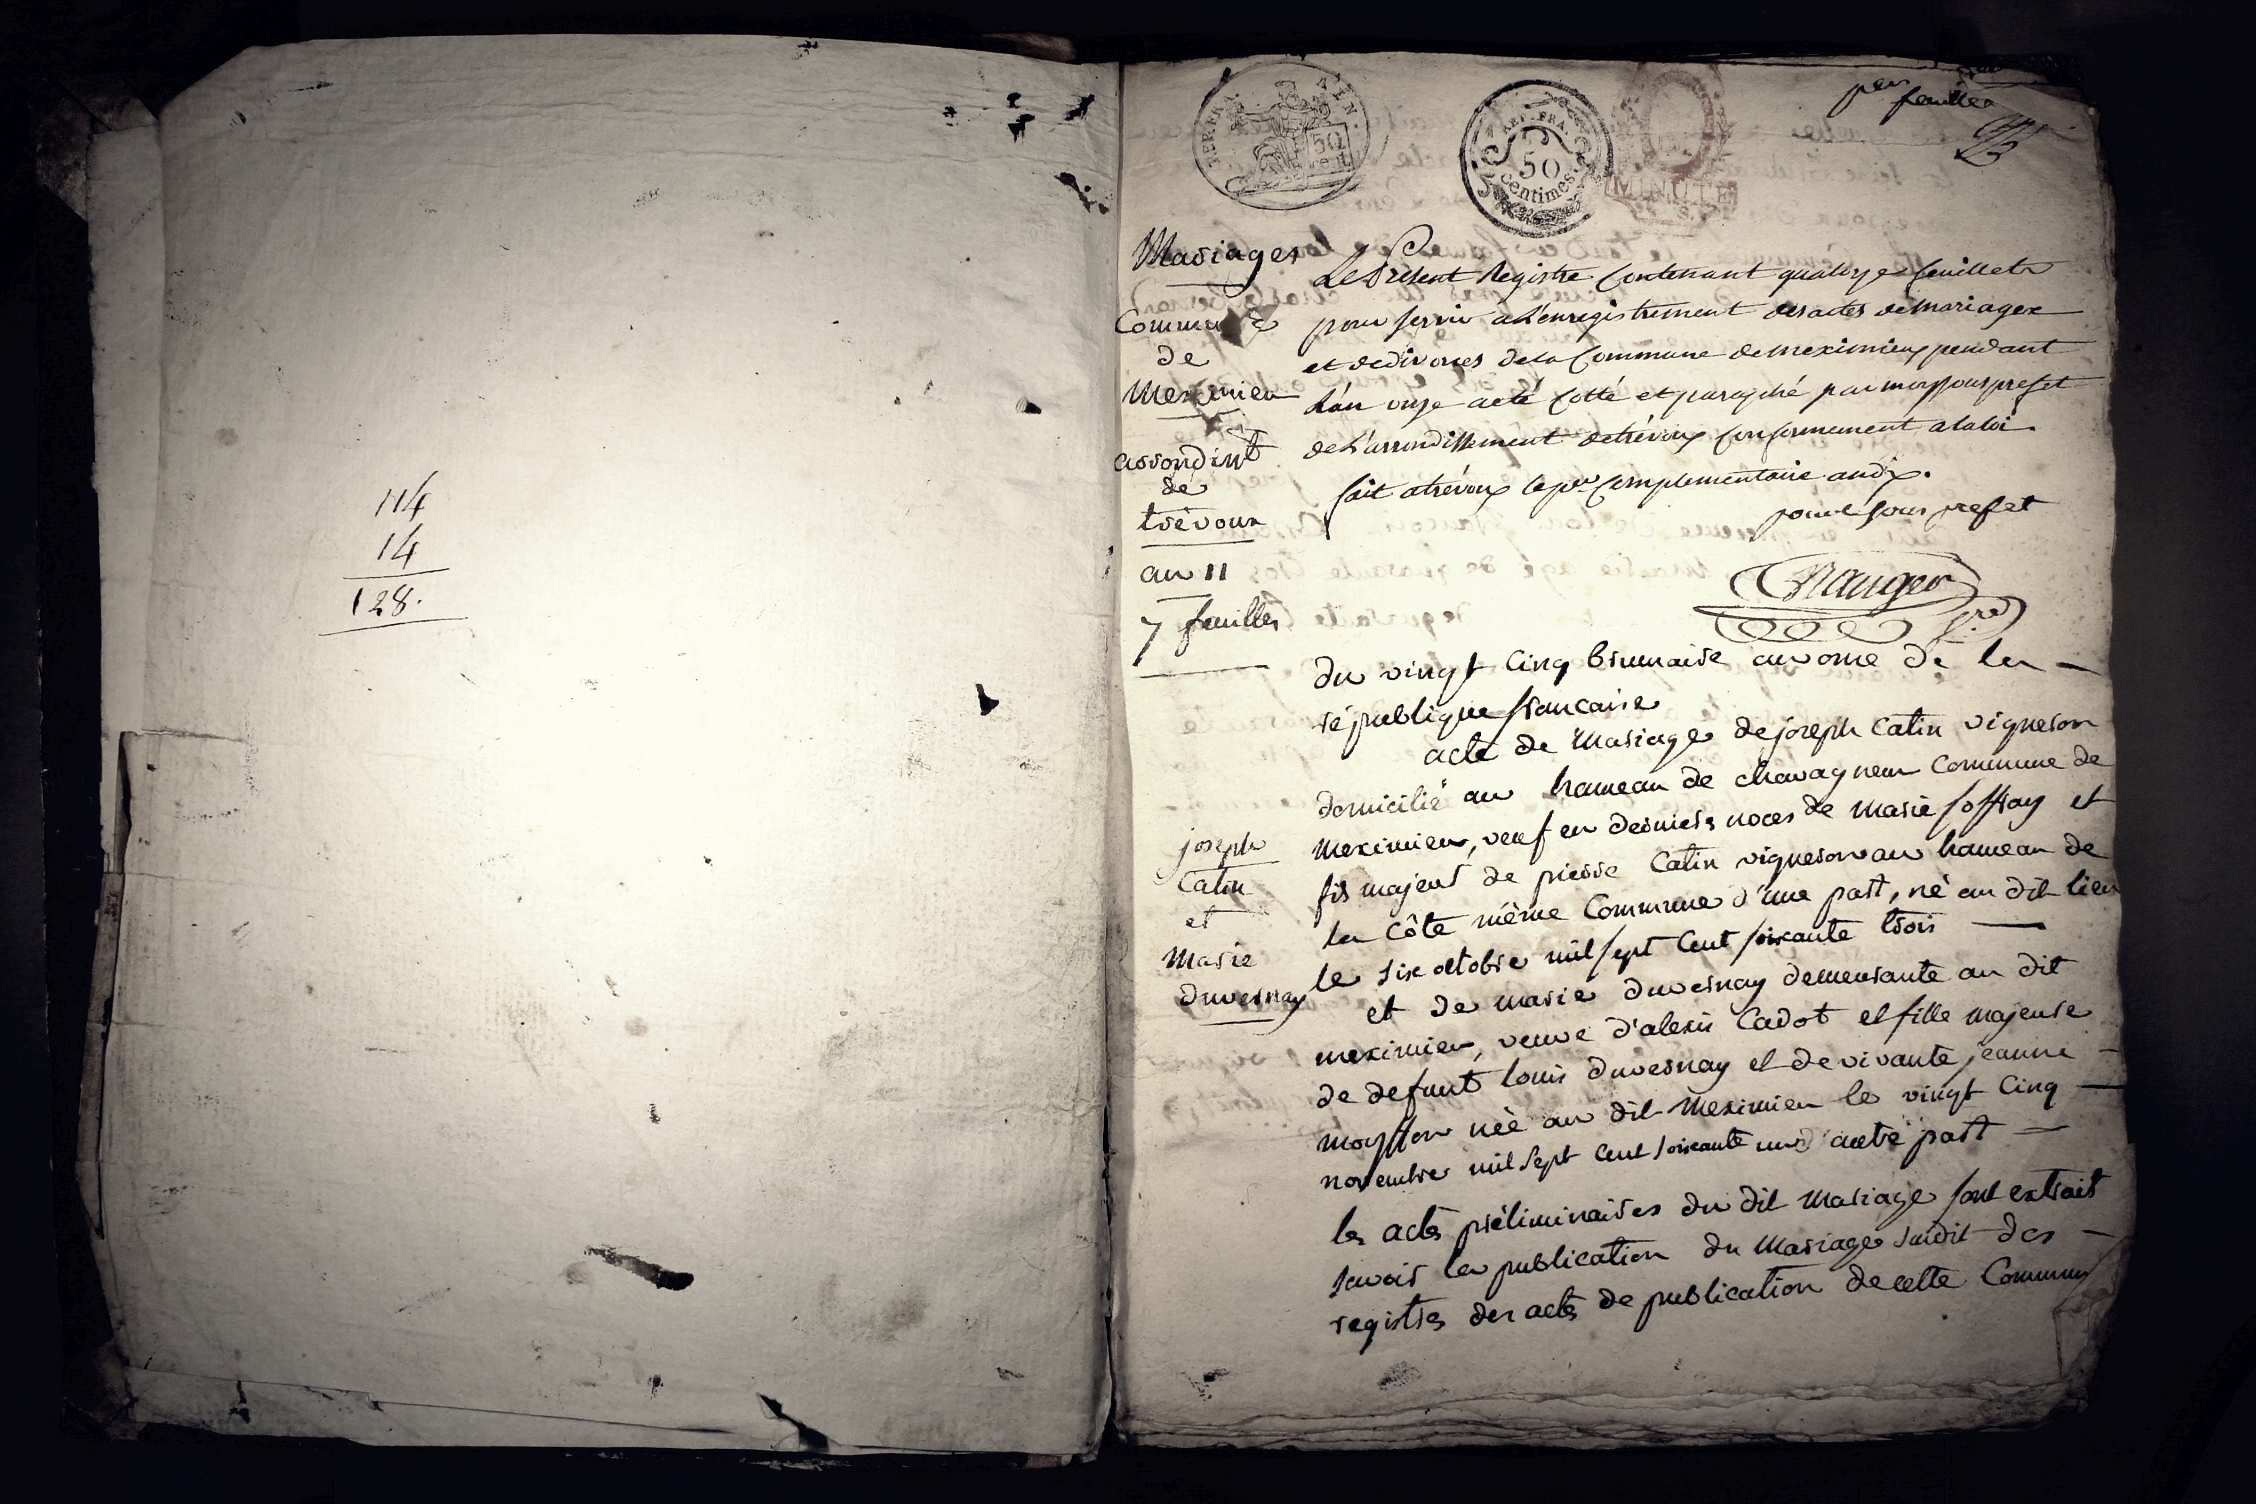 114
14
128.
REP. FRA.
50
cent
REP. FRA.
50
centimes.
MINUTE
per
feuillet
Mariages
Commune
de
Meximieu
arrondint
de
trévoux
an 11
7 feuilles
Le Présent Registre Contenant quatorze feuillets
pour servir a L'enregistrement des actes de Mariages
et de divorces de la Commune de meximieux pendant
L'an onze a été Cotté et paraphé par moy sous prefet
de L'arrondissement de trévoux Conformement a la loi.
fait a trévoux le per Complementaire an dix.
pour le sous prefet
du vingt cinq brumaire an onze de la
république francaise
acte de Mariage de joseph Catin vigneron
domicilié au hameau de chavagneux Commune de
Meximieu, veuf en dernieres noces de marie joffray et
fils majeur de pierre Catin vigneron au hameau de
la Côte même Commune d'une part, né au dit lieu
le six octobre mil sept Cent soixante trois
joseph
Catin
et
Marie
duvernay
et de marie duvernay demeurante au dit
meximieu, veuve d'alexis Cadot et fille majeure
de defunt Louis duvernay et de vivante jeanne
née au dit Meximieu le vingt Cinq
novembre mil sept Cent soixante un d'autre part
les actes préliminaires du dit Mariage sont extrait
savoir la publication du Mariage susdit des
registres des actes de publication de cette Commune